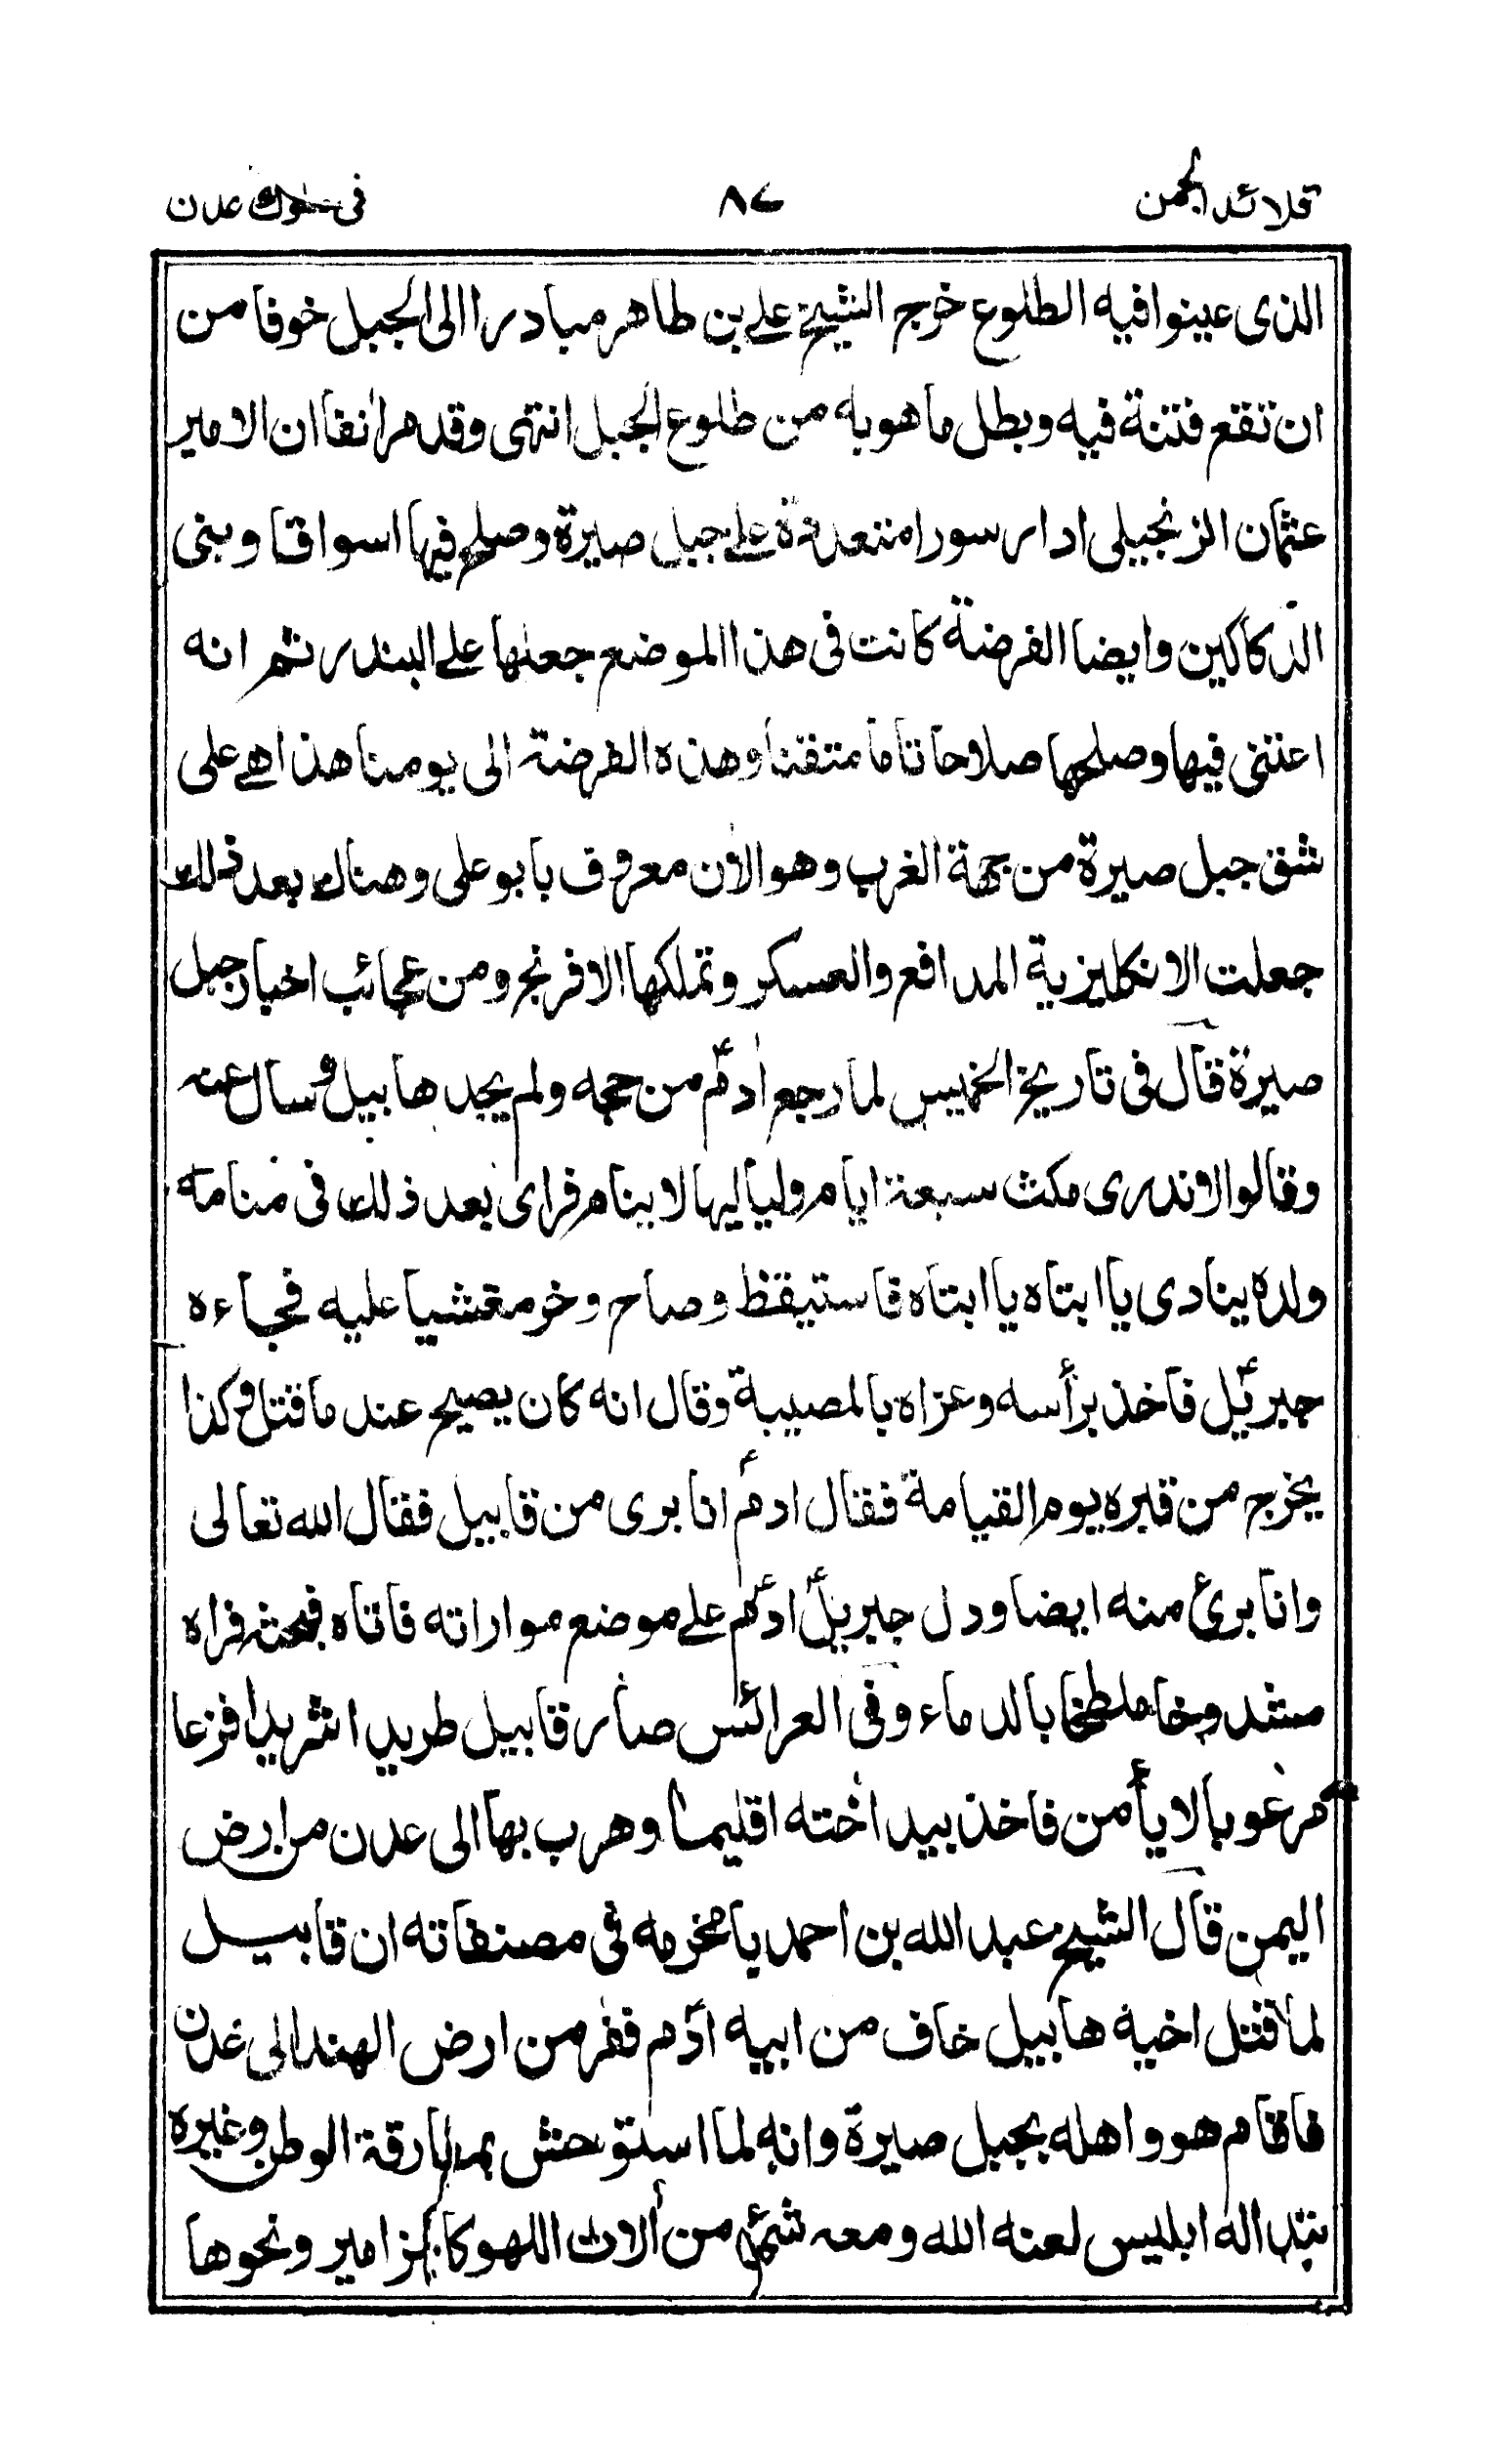 قلائد الجمن ٨٧ في ملوك عدن
الذى عينوا فيه الطلوع خرج الشيخ على بن طاهر مبادرا الى الجبل خوفا من
ان تقع فتنة فيه وبطل ما هو به من طلوع الجبل انتهى وقد مر انفا ان الامير
عثمان الزنجيلى ادار سورا متعددة على جبل صيرة وصلح فيها اسواقا وبنى
الدّكاكين وايضا الفرضة كانت فى هذا الموضع جعلها على البندر ثم انه
اعتنى فيها وصلحها صلاحا تاما متقنا وهذه الفرضة الى يومنا هذا هى على
شق جبل صيرة من جهة الغرب وهو الان معروف بابو على وهناك بعد ذلك
جعلت الانكليزية المدافع والعسكر وتملكها الافرنج ومن عجائب اخبار جبل
صيرة قال فى تاريخ الخميس لما رجع ادمؑ من حجه ولم يجد هابيل وسال عنه
وقالوا لا ندرى مكث سبعة ايام ولياليها لا ينام فراى بعد ذلك فى منامه
ولده ينادى يا ابتاه يا ابتاه فاستيقظ وصاح وخر مغشيا عليه فجاءه
جبرئيل فاخذ برأسه وعزاه بالمصيبة وقال انه كان يصيح عند ما قتل وكذا
يخرج من قبره يوم القيامة فقال ادمؑ انا برى من قابيل فقال الله تعالى
وانا برئ منه ايضا ودل جبريلؑ ادمؑ على موضع مواراته فاتاه فبحث فراه
مشدوخا ملطخا بالدماء وفى العرائس صار قابيل طريدا شريدا فزعا
مرعوبا لا يأمن فاخذ بيد اخته اقليما وهرب بها الى عدن من ارض
اليمن قال الشيخ عبد الله بن احمد با مخرمه فى مصنفاته ان قابيل
لما قتل اخيه هابيل خاف من ابيه ادم ففر من ارض الهند الى عدن
فاقام هو واهله بجبل صيرة وانه لما استوحش بمفارقة الوطن وغيره
تبدا له ابليس لعنه الله ومعه شئ من ألات اللهو كالمزامير ونحوها